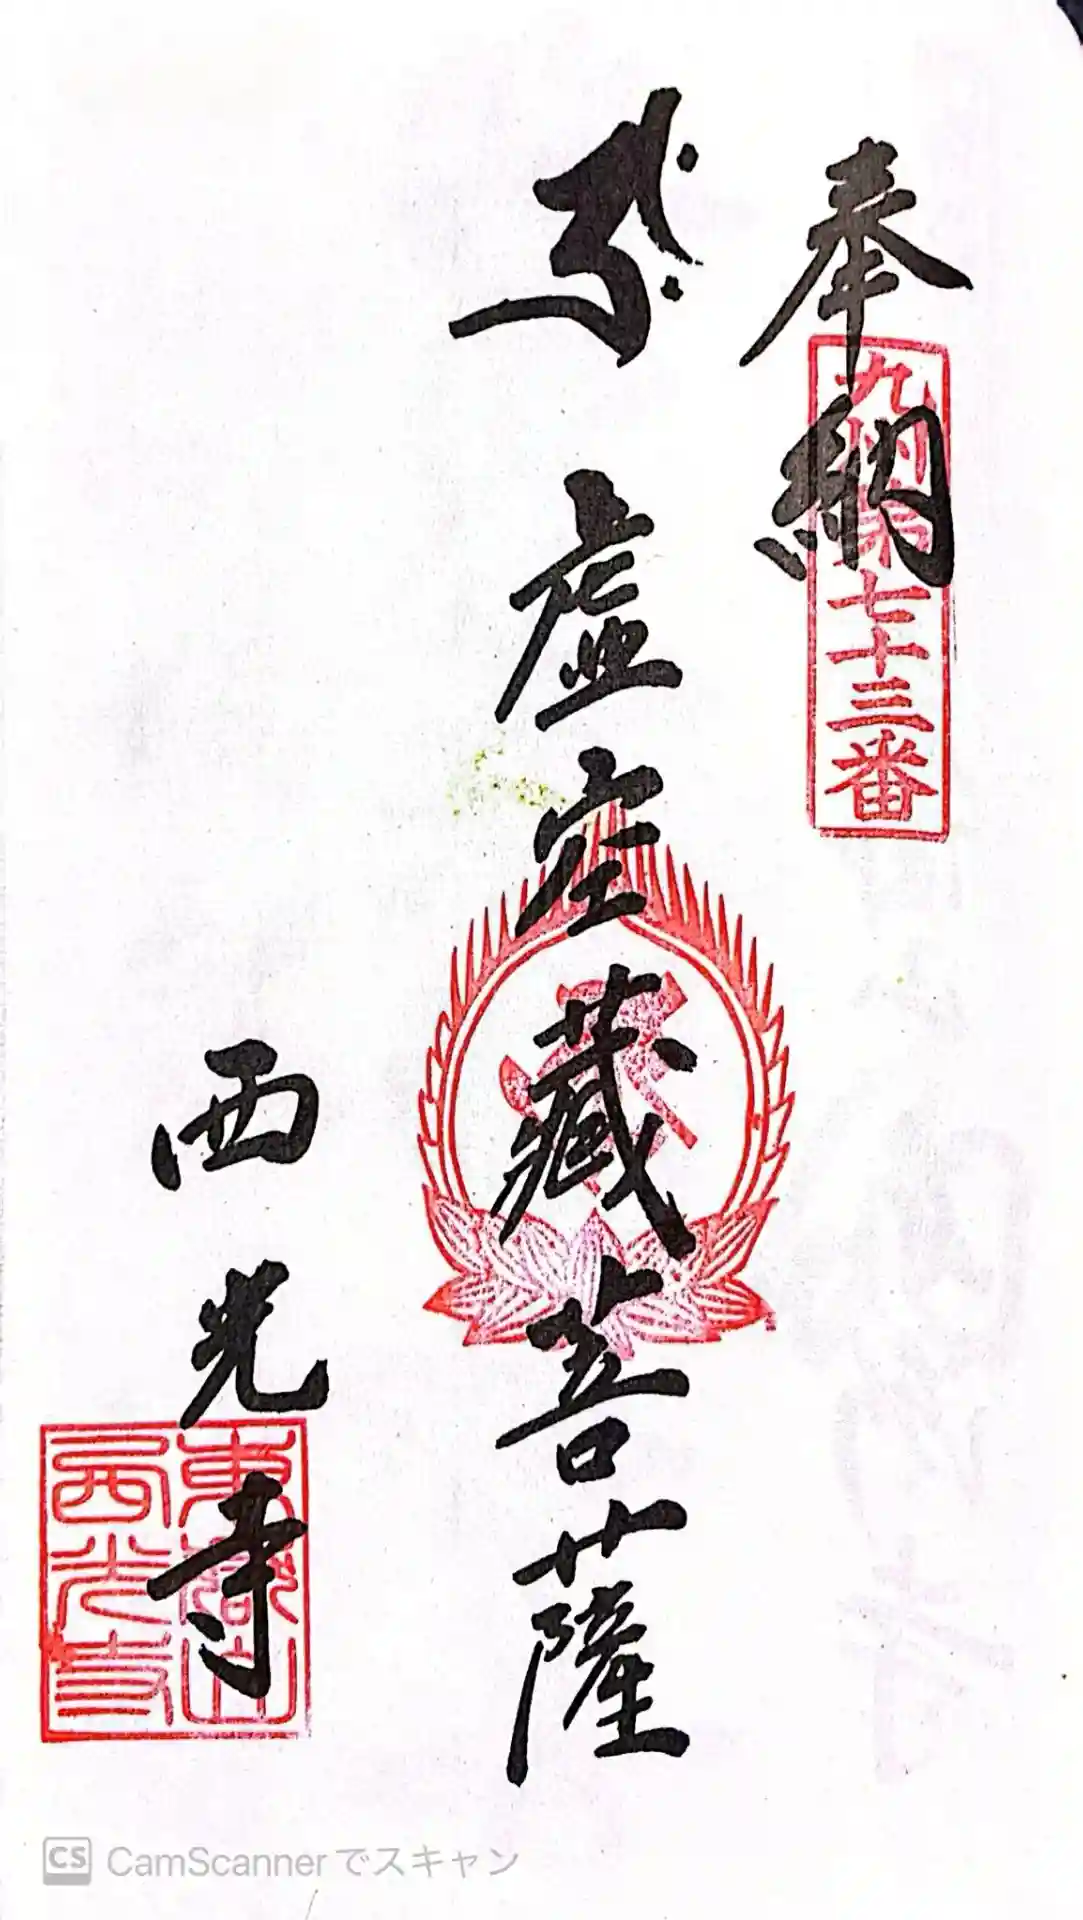 奉納
九州第七十三番
虚空蔵菩薩
西光寺
西光寺
CS CamScannerでスキャン